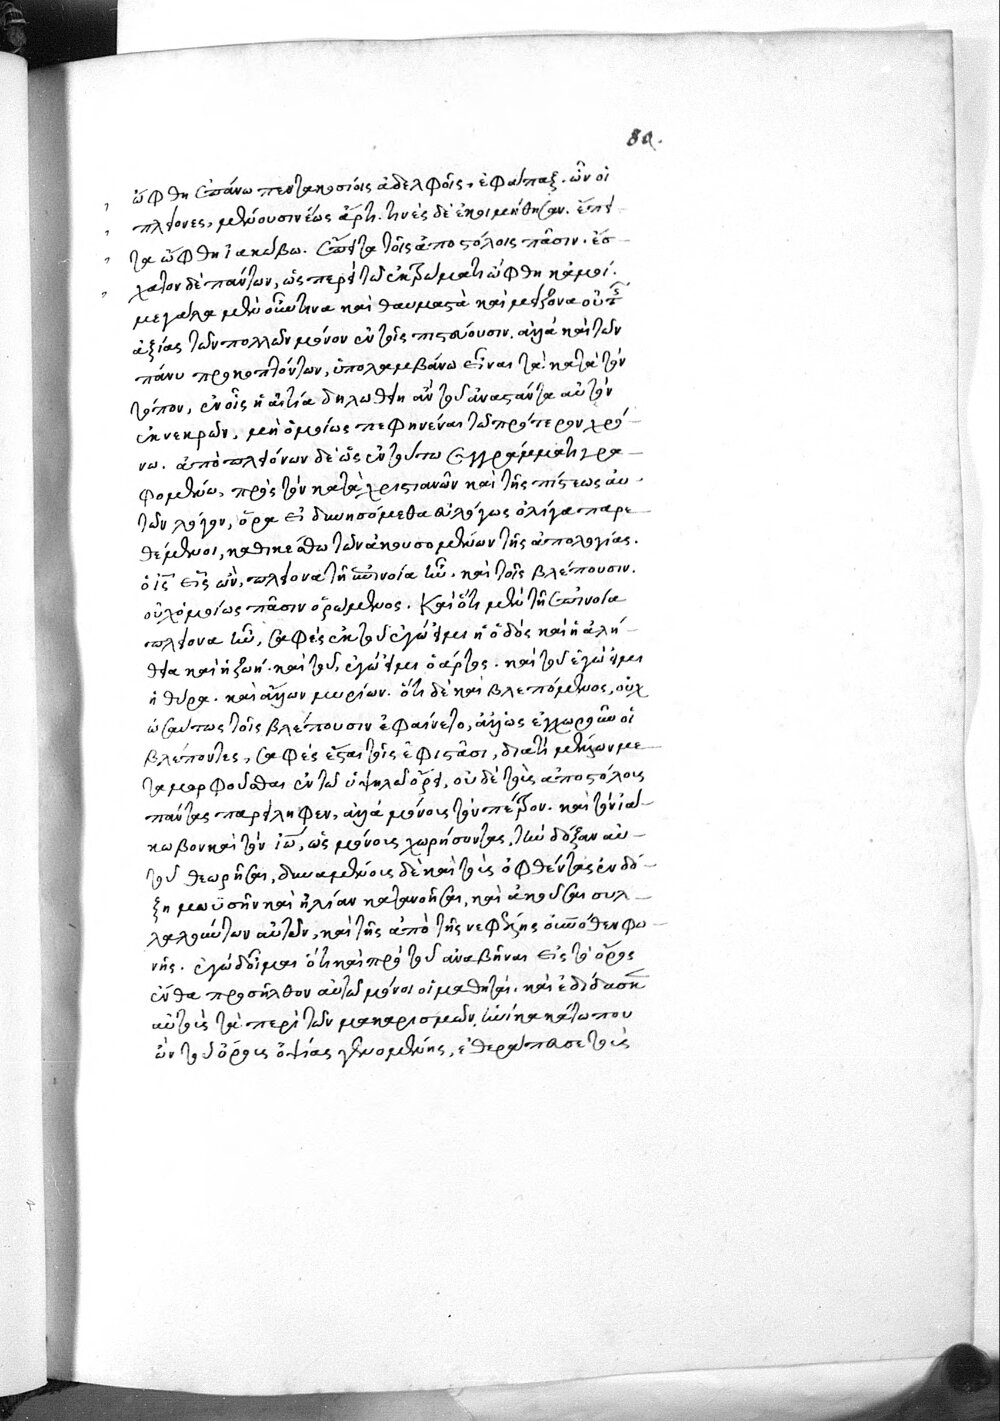 80.
ὤφθη ἐπάνω πεντακοσίοις ἀδελφοῖς, ἐφάπαξ. ὧν οἱ
πλείονες, μένουσιν ἕως ἄρτι. τινὲς δὲ ἐκοιμήθησαν. ἔπει
τα ὤφθη ἰακώβω. ἔπειτα τοῖς ἀποστόλοις πᾶσιν. ἔσ–
χατον δὲ πάντων, ὡς περεὶ τῶ ἐκτρώματι ὤφθη κἀμοί.
μεγάλα μὲν οὖν τινα καὶ θαυμαστὰ καὶ μείζονα οὐ τῆς
ἀξίας τῶν πολλῶν μόνον ἐν τοῖς πιστεύουσιν. ἀλλὰ καὶ τῶν
πάνυ προκοπτόντων, ὑπολαμβάνω εἶναι τὰ κατὰ τὸν
τόπον, ἐν οἷς ἡ αἰτία δηλωθείη ἂν τοῦ ἀναστάντα αὐτὸν
ἐκ νεκρῶν, μὴ ὁμοίως πεφηνέναι τῶ πρότερον χρό–
νω. ἀπὸ πλειόνων δὲ ὡς ἐν τούτω συγγράμματι γρα–
φομένω, πρὸς τὸν κατὰ χριστιανῶν καὶ τῆς πίστεως αὐ–
τῶν λόγον, ὅρα εἰ δυνησόμεθα εὐλόγως ὀλίγα παρα–
θέμενοι, καθικέσθαι τῶν ἀκουσομένων τῆς ἀπολογίας.
ὁ ἰς εἷς ὢν, πλείονα τῆ ἐπινοία ἦν. καὶ τοῖς βλέπουσιν.
οὐχ ὁμοίως πᾶσιν ὁρώμενος. Καὶ ὅτι μὲν τῆ ἐπινοία
πλείονα ἦν, σαφὲς ἐκ τοῦ ἐγώ εἰμι ἡ ὁδὸς καὶ ἡ ἀλή–
θεια καὶ ἡ ζωή. καὶ τοῦ, ἐγώ εἰμι ὁ ἄρτος. καὶ τοῦ ἐγώ εἰμι
ἡ θύρα. καὶ ἄλλων μυρίων. ὅτι δὲ καὶ βλεπόμενος, οὐχ
ὡσαύτως τοῖς βλέπουσιν ἐφαίνετο, ἀλλ' ὡς ἐχώρουν οἱ
βλέποντες, σαφὲς ἔσται τοῖς ἐφιστᾶσι, διατί μέλλων με–
ταμορφοῦσθαι ἐν τῶ ὑψηλῶ ὄρει, οὐδὲ τοὺς ἀποστόλους
πάντας παρείληφεν, ἀλλὰ μόνους τὸν πέτρον. καὶ τὸν ἰά–
κωβον καὶ τὸν ἰω, ὡς μόνους χωρήσοντας, τὴν δόξαν αὐ–
τοῦ θεωρῆσαι, δυναμένους δὲ καὶ τοὺς ὀφθέντας ἐν δό–
ξη μωϋσῆν καὶ ἠλίαν κατανοῆσαι, καὶ ἀκοῦσαι συλ–
λαλούντων αὐτῶν, καὶ τῆς ἀπὸ τῆς νεφέλης οὐρανόθεν φω–
νῆς. ἐγὼ δ' οἶμαι ὅτι καὶ πρὸ τοῦ ἀναβῆναι εἰς τὸ ὄρος
ἔνθα προσῆλθον αὐτῶ μόνοι οἱ μαθηταὶ. καὶ ἐδίδασκεν
αὐτοὺς τὰ περὶ τῶν μακαρισμῶν, ἡνίκα κάτω που
ὢν τοῦ ὄρους ὀψίας γενομένης, ἐθεράπευσε τοὺς